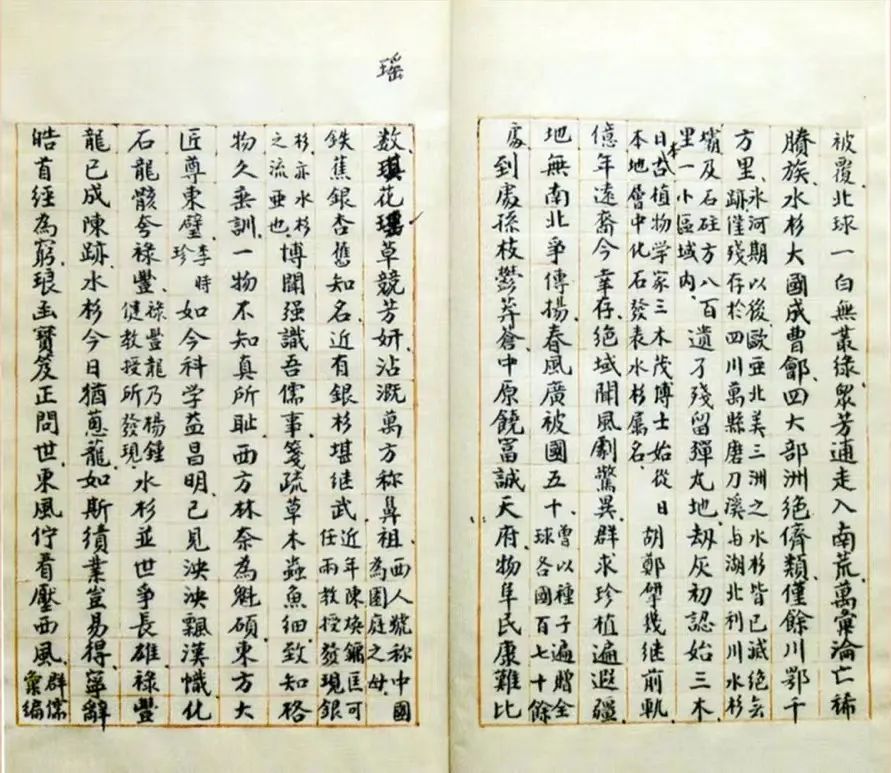 被覆北球一白無叢綠眾芳逋走入南荒萬彙淪亡稀
賸族水杉大國成曹鄶四大部洲绝儕類僅餘川鄂千
方里氷河期以後歐亞北美三洲之水杉皆已滅绝矣
跡僅殘存於四川萬縣磨刀溪与湖北利川水杉
壩及石砫方八百
里一小區域内遺孑殘留彈丸地劫灰初認始三木
日本古植物学家三木茂博士始從日
本地層中化石發表水杉属名胡鄭肈幾继前軌
億年遠裔今幸存绝域聞風劇驚異群求珍植遍遐疆
地無南北争傳揚春風廣被國五十曾以種子遍贈全
球各國百七十餘
處到處孫枝鬱莽蒼中原饒富誠天府物阜民康難比
瑶
数琪花瑶草競芳妍沾溉萬方称鼻祖西人號称中國
為園庭之母
鉄蕉銀杏舊知名近有銀杉堪继武近年陳焕鏞匡可
任兩教授發現銀
杉亦水杉
之流亜也博聞强識吾儒事箋疏草木蟲魚细致知格
物久垂訓一物不知真所耻西方林奈為魁碩東方大
匠尊東璧李時
珍如今科学益昌明已見泱泱飄漢幟化
石龍骸夸禄豐禄豐龍乃楊鍾
健教授所發現水杉並世争長雄禄豐
龍已成陳跡水杉今日猶蔥蘢如斯績業豈易得寧辭
皓首經為窮琅函寶笈正問世東風佇看壓西風群儒
彙编